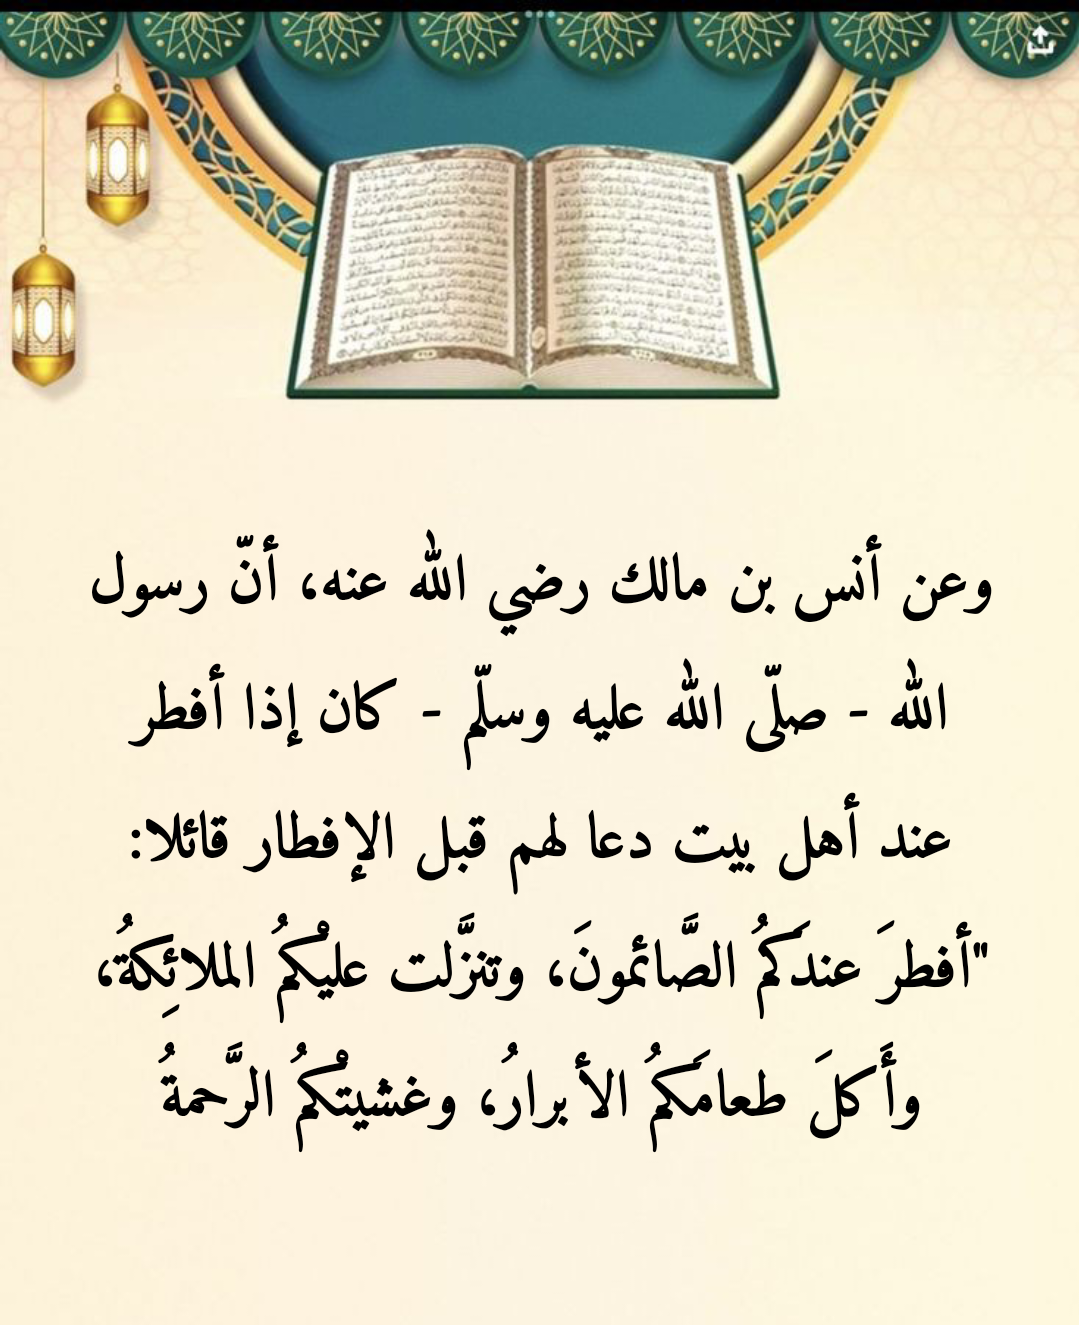 وعن أنس بن مالك رضي الله عنه، أنّ رسول
الله - صلّى الله عليه وسلّم - كان إذا أفطر
عند أهل بيت دعا لهم قبل الإفطار قائلا:
"أفطرَ عندَكمُ الصَّائمونَ، وتنزَّلت عليْكمُ الملائِكةُ،
وأَكلَ طعامَكمُ الأبرارُ، وغشيتْكمُ الرَّحمةُ